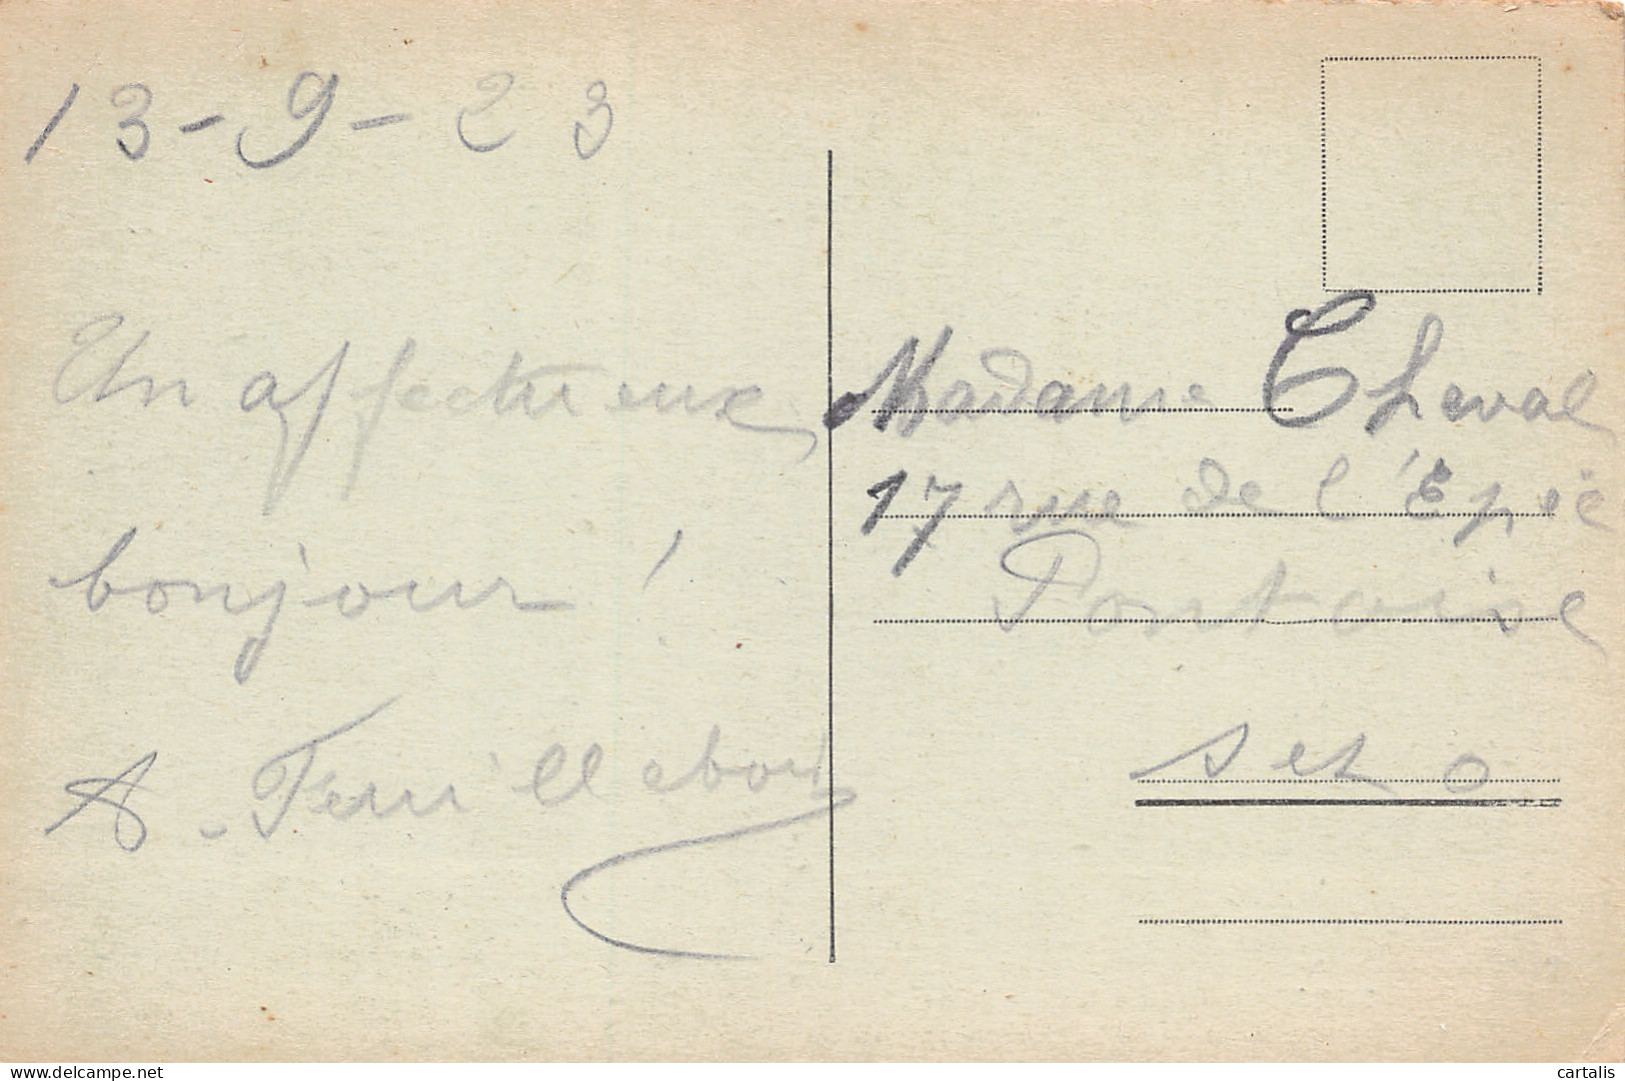 13-9-23
Un affectueux
bonjour !
A. Feuillebois
Madame Cheval
17 rue de l'Épée
Pontoise
S et O
delcampe.net
cartalis